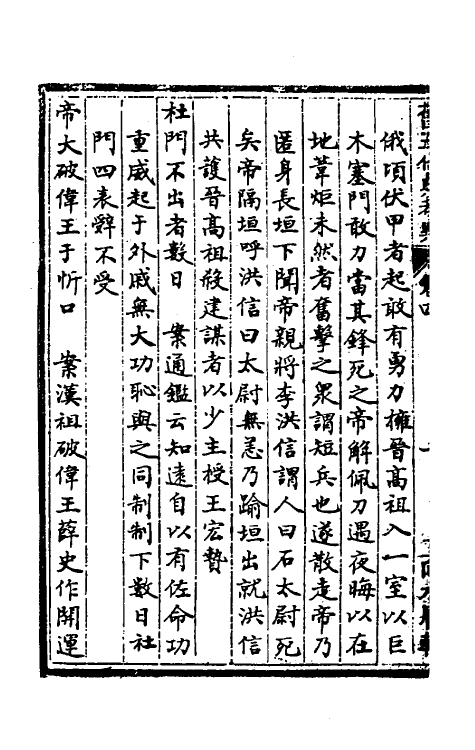 舊五代史考異 卷四
俄頃伏甲者起敢有勇力擁晉高祖入一室以巨
木塞門敢力當其鋒死之帝解佩刀遇夜晦以在
地葦炬未然者奮擊之衆謂短兵也遂散走帝乃
匿身長垣下聞帝親將李洪信謂人曰石太尉死
矣帝隔垣呼洪信曰太尉無恙乃踰垣出就洪信
共護晉高祖殺建謀者以少主授王宏贄
杜門不出者數日　案通鑑云知遠自以有佐命功
重威起于外戚無大功恥與之同制制下數日杜
門四表辭不受
帝大破偉王于忻口　案漢祖破偉王薛史作開運